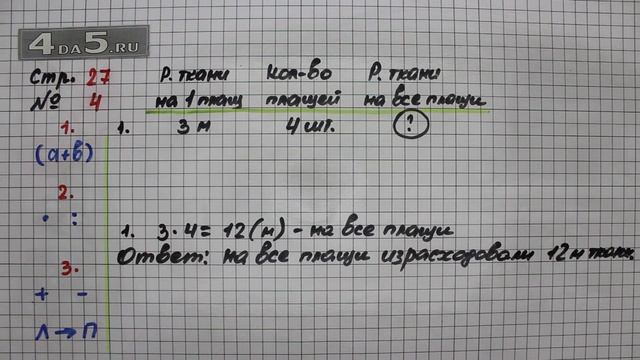 4DA5.RU
Стр. 27
№ 4
Р. ткани Кол-во Р. ткани
на 1 плащ плащей на все плащи
1. 3 м 4 шт. ?
1.
(а+в)
2.
· :
3.
+ -
Л → П
1. 3 · 4 = 12 (м) - на все плащи
Ответ: на все плащи израсходовали 12 м ткани.